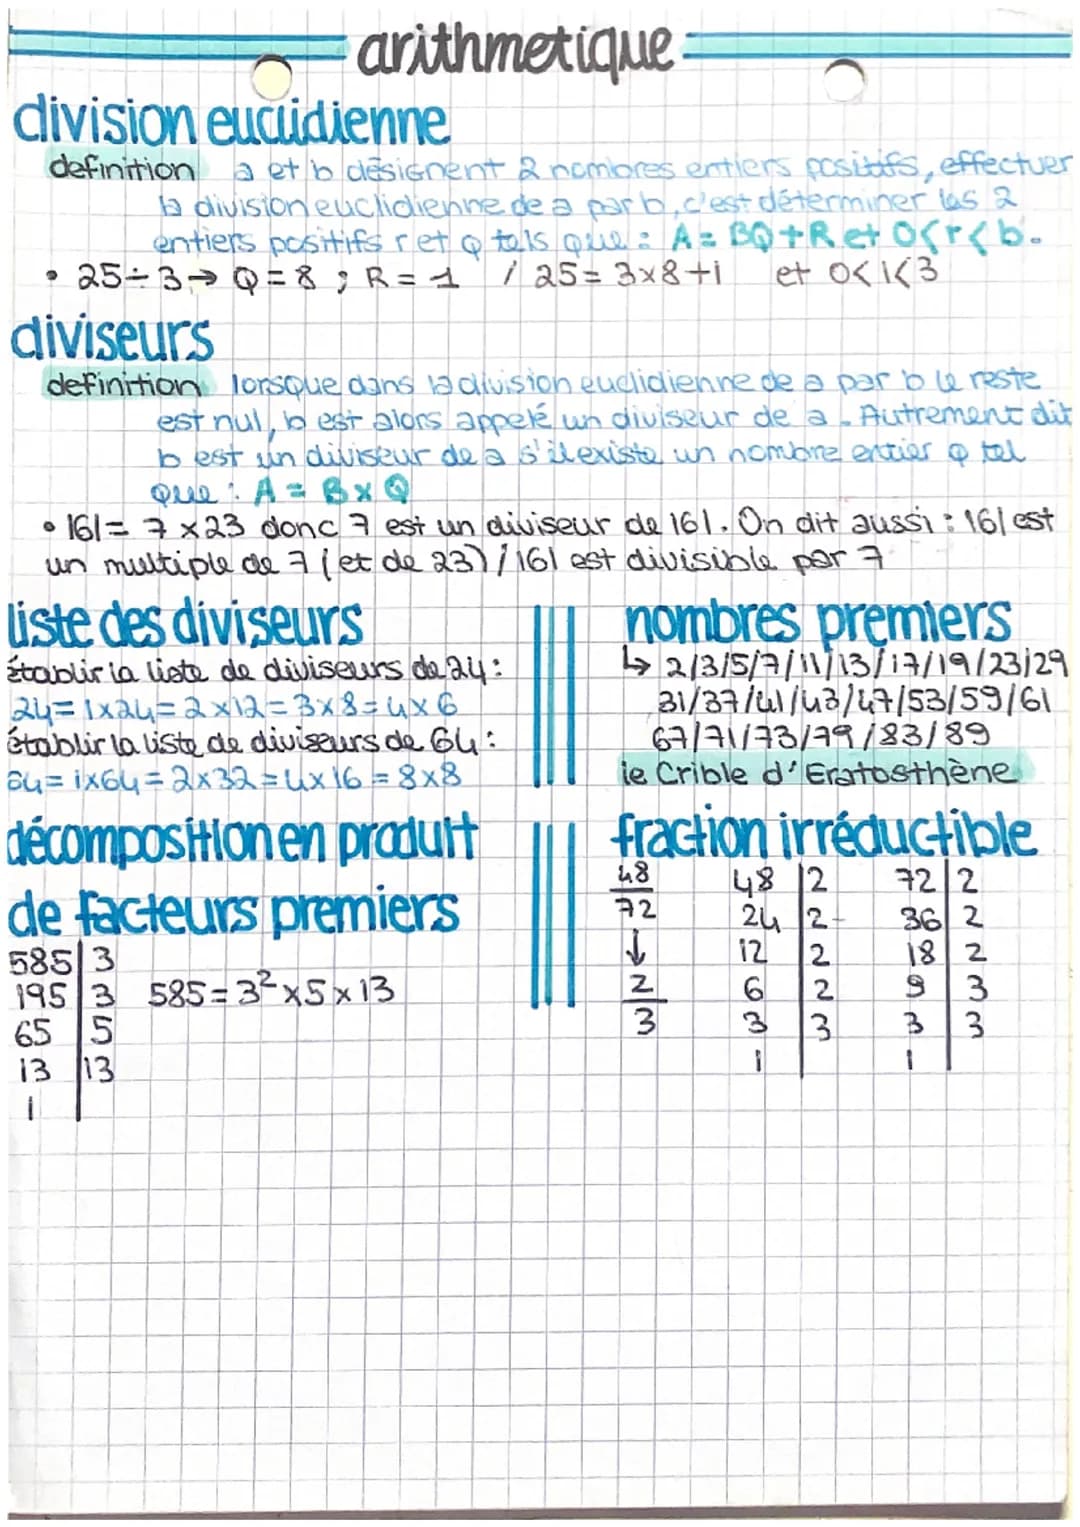 arithmetique
division euclidienne
definition a et b désignent 2 nombres entiers positifs, effectuer
la division euclidienne de a par b, c'est déterminer les 2
entiers positifs r et q tels que : A = BQ + R et 0<r<b.
• 25÷3→ Q = 8 ; R = 1 / 25 = 3x8+1 et 0<1<3
diviseurs
definition lorsque dans la division euclidienne de a par b le reste
est nul, b est alors appelé un diviseur de a. Autrement dit
b est un diviseur de a s'il existe un nombre entier q tel
que : A = B x Q
• 161 = 7 x 23 donc 7 est un diviseur de 161. On dit aussi : 161 est
un multiple de 7 (et de 23) / 161 est divisible par 7
liste des diviseurs
établir la liste de diviseurs de 24 :
24 = 1x24 = 2x12 = 3x8 = 4x6
établir la liste de diviseurs de 64 :
64 = 1x64 = 2x32 = 4x16 = 8x8
nombres premiers
↳ 2/3/5/7/11/13/17/19/23/29
31/37/41/43/47/53/59/61
67/71/73/79/83/89
le Crible d'Eratosthène
décomposition en produit
de facteurs premiers
585 | 3
195 | 3 585 = 3² x 5 x 13
65 | 5
13 | 13
1
fraction irréductible
48 48 | 2 72 | 2
72 24 | 2 36 | 2
↓ 12 | 2 18 | 2
2 6 | 2 9 | 3
3 3 | 3 3 | 3
1 1